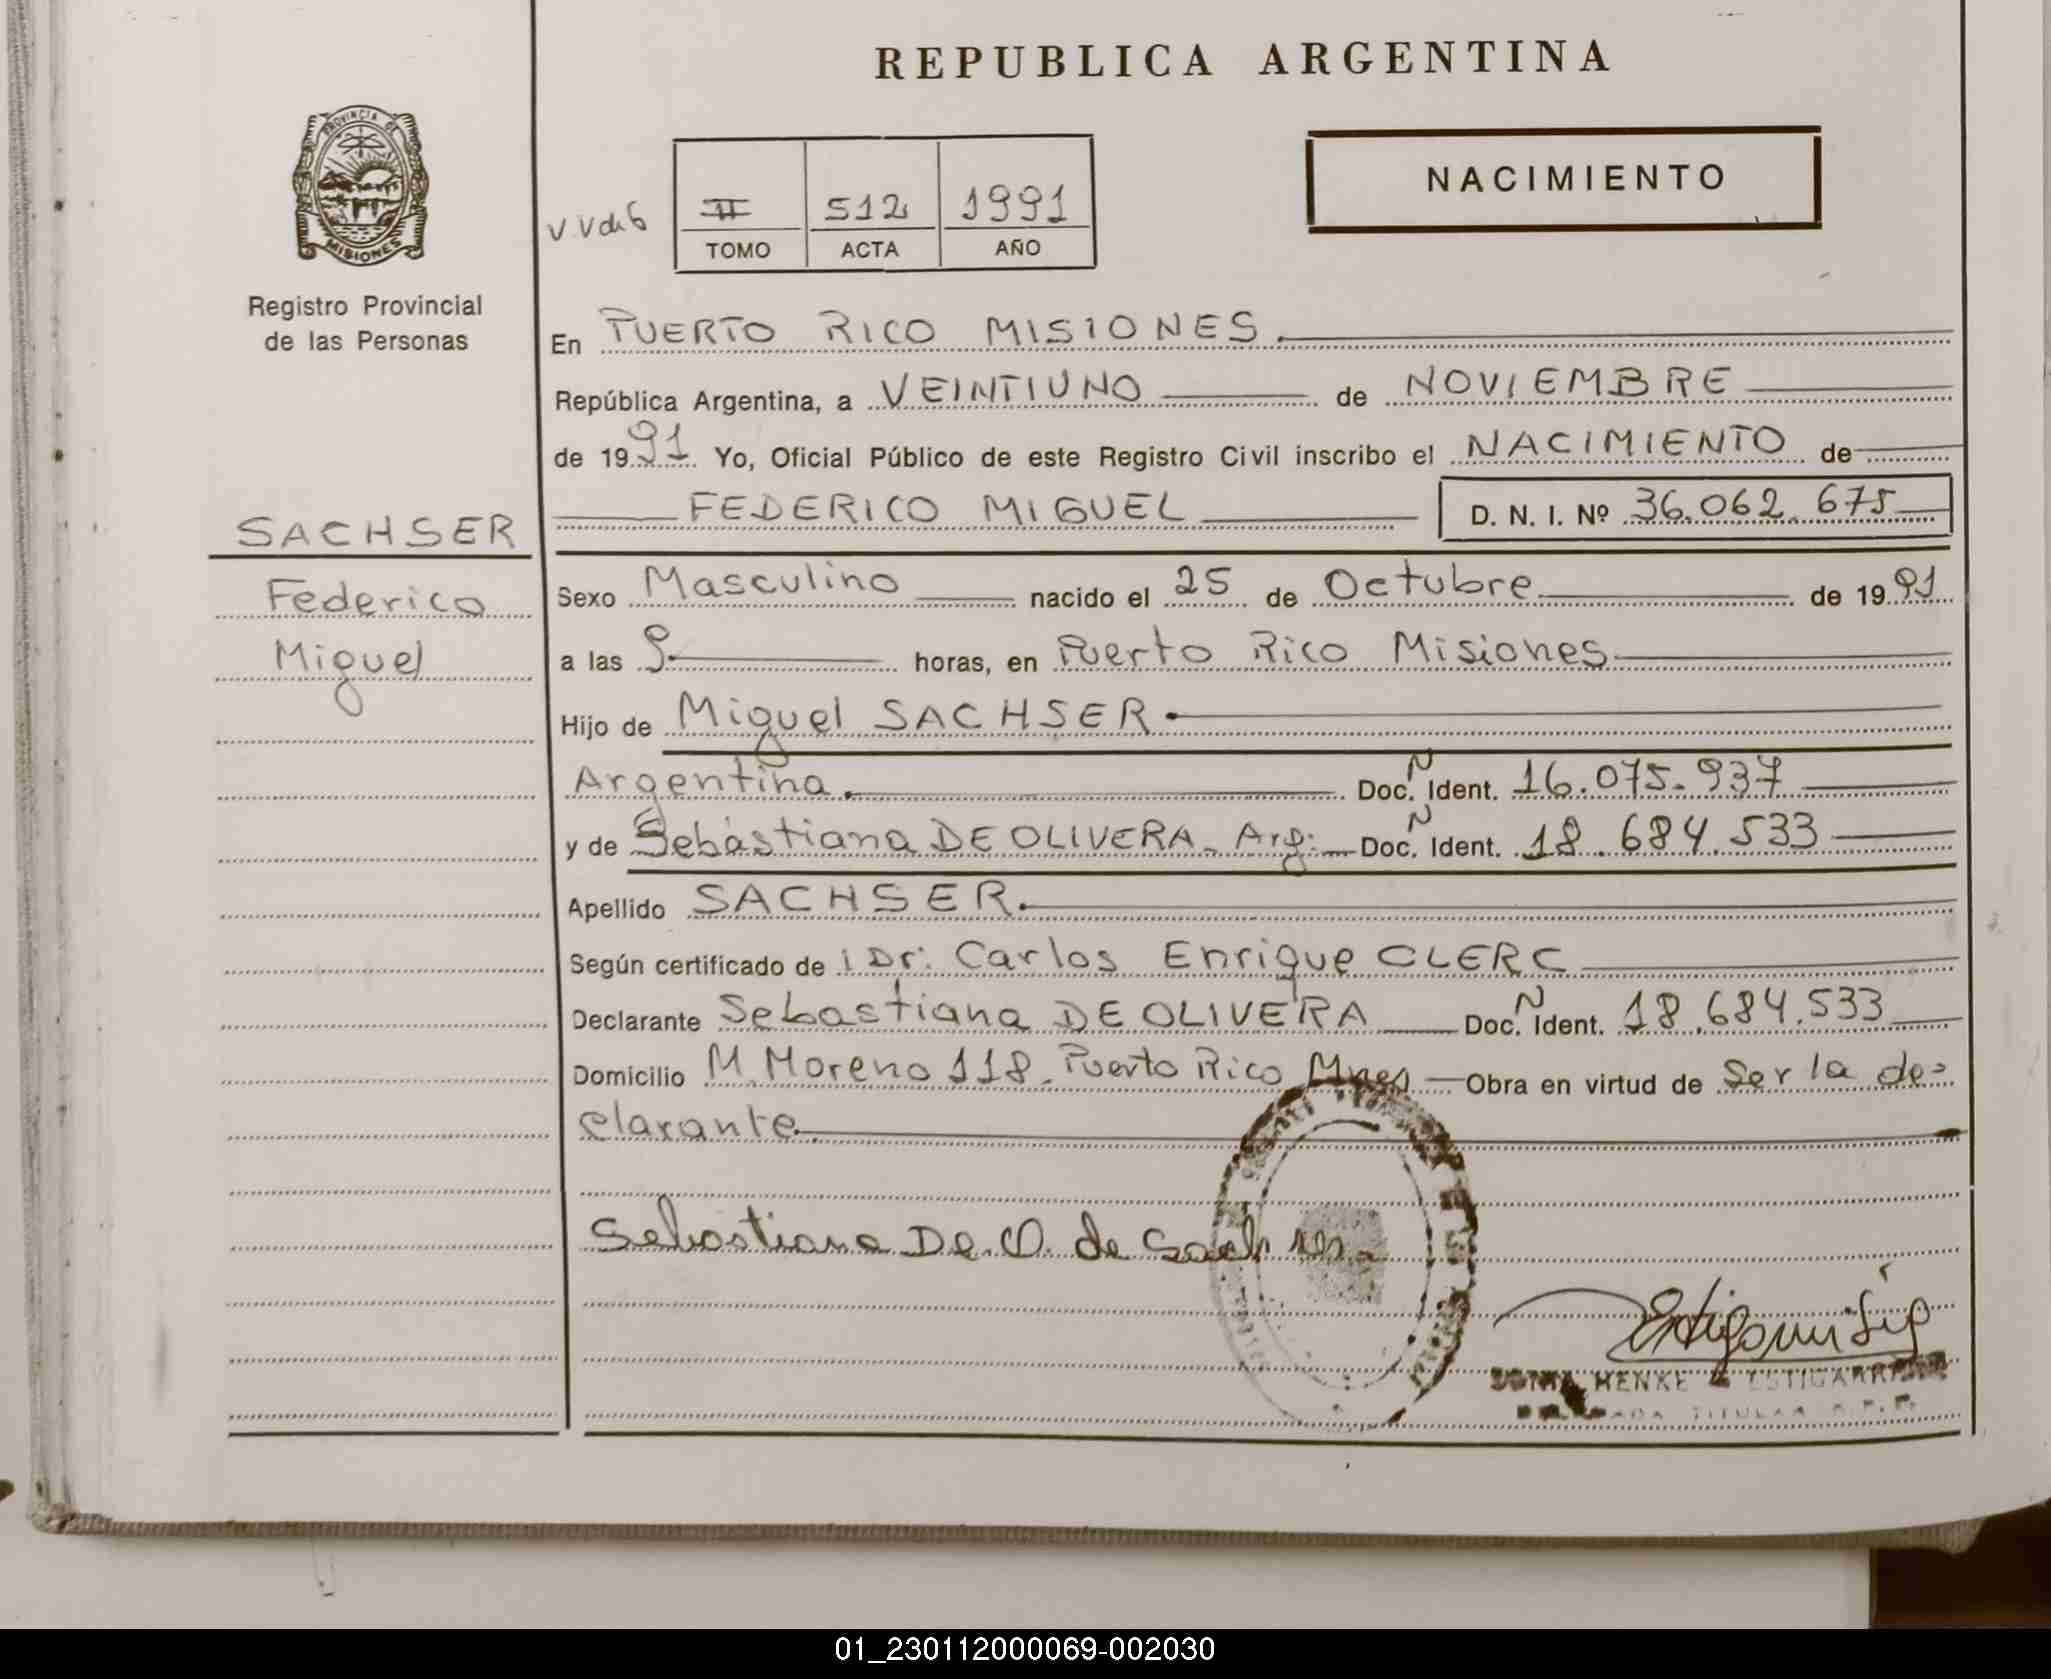 REPUBLICA ARGENTINA
PROVINCIA DE
MISIONES
NACIMIENTO
II 512 1991
TOMO ACTA AÑO
Registro Provincial
de las Personas
En PUERTO RICO MISIONES.
República Argentina, a VEINTIUNO de NOVIEMBRE
de 1991 Yo, Oficial Público de este Registro Civil inscribo el NACIMIENTO de
FEDERICO MIGUEL D. N. I. Nº 36.062.675
SACHSER
Federico
Miguel
Sexo Masculino nacido el 25 de Octubre de 1991
a las 9 horas, en Puerto Rico Misiones
Hijo de Miguel SACHSER
Argentina. Doc. N Ident. 16.075.937
y de Sebastiana DE OLIVERA - Arg. Doc. N Ident. 18.684.533
Apellido SACHSER.
Según certificado de Dr. Carlos Enrique CLERC
Declarante Sebastiana DE OLIVERA Doc. N Ident. 18.684.533
Domicilio M. Moreno 118. Puerto Rico Mnes Obra en virtud de Ser la de=
clarante
Sebastiana De. O. de Sachser
SONIA HENKE de ESTIGARRIBIA
DELEGADA TITULAR R.P.P.
01_230112000069-002030